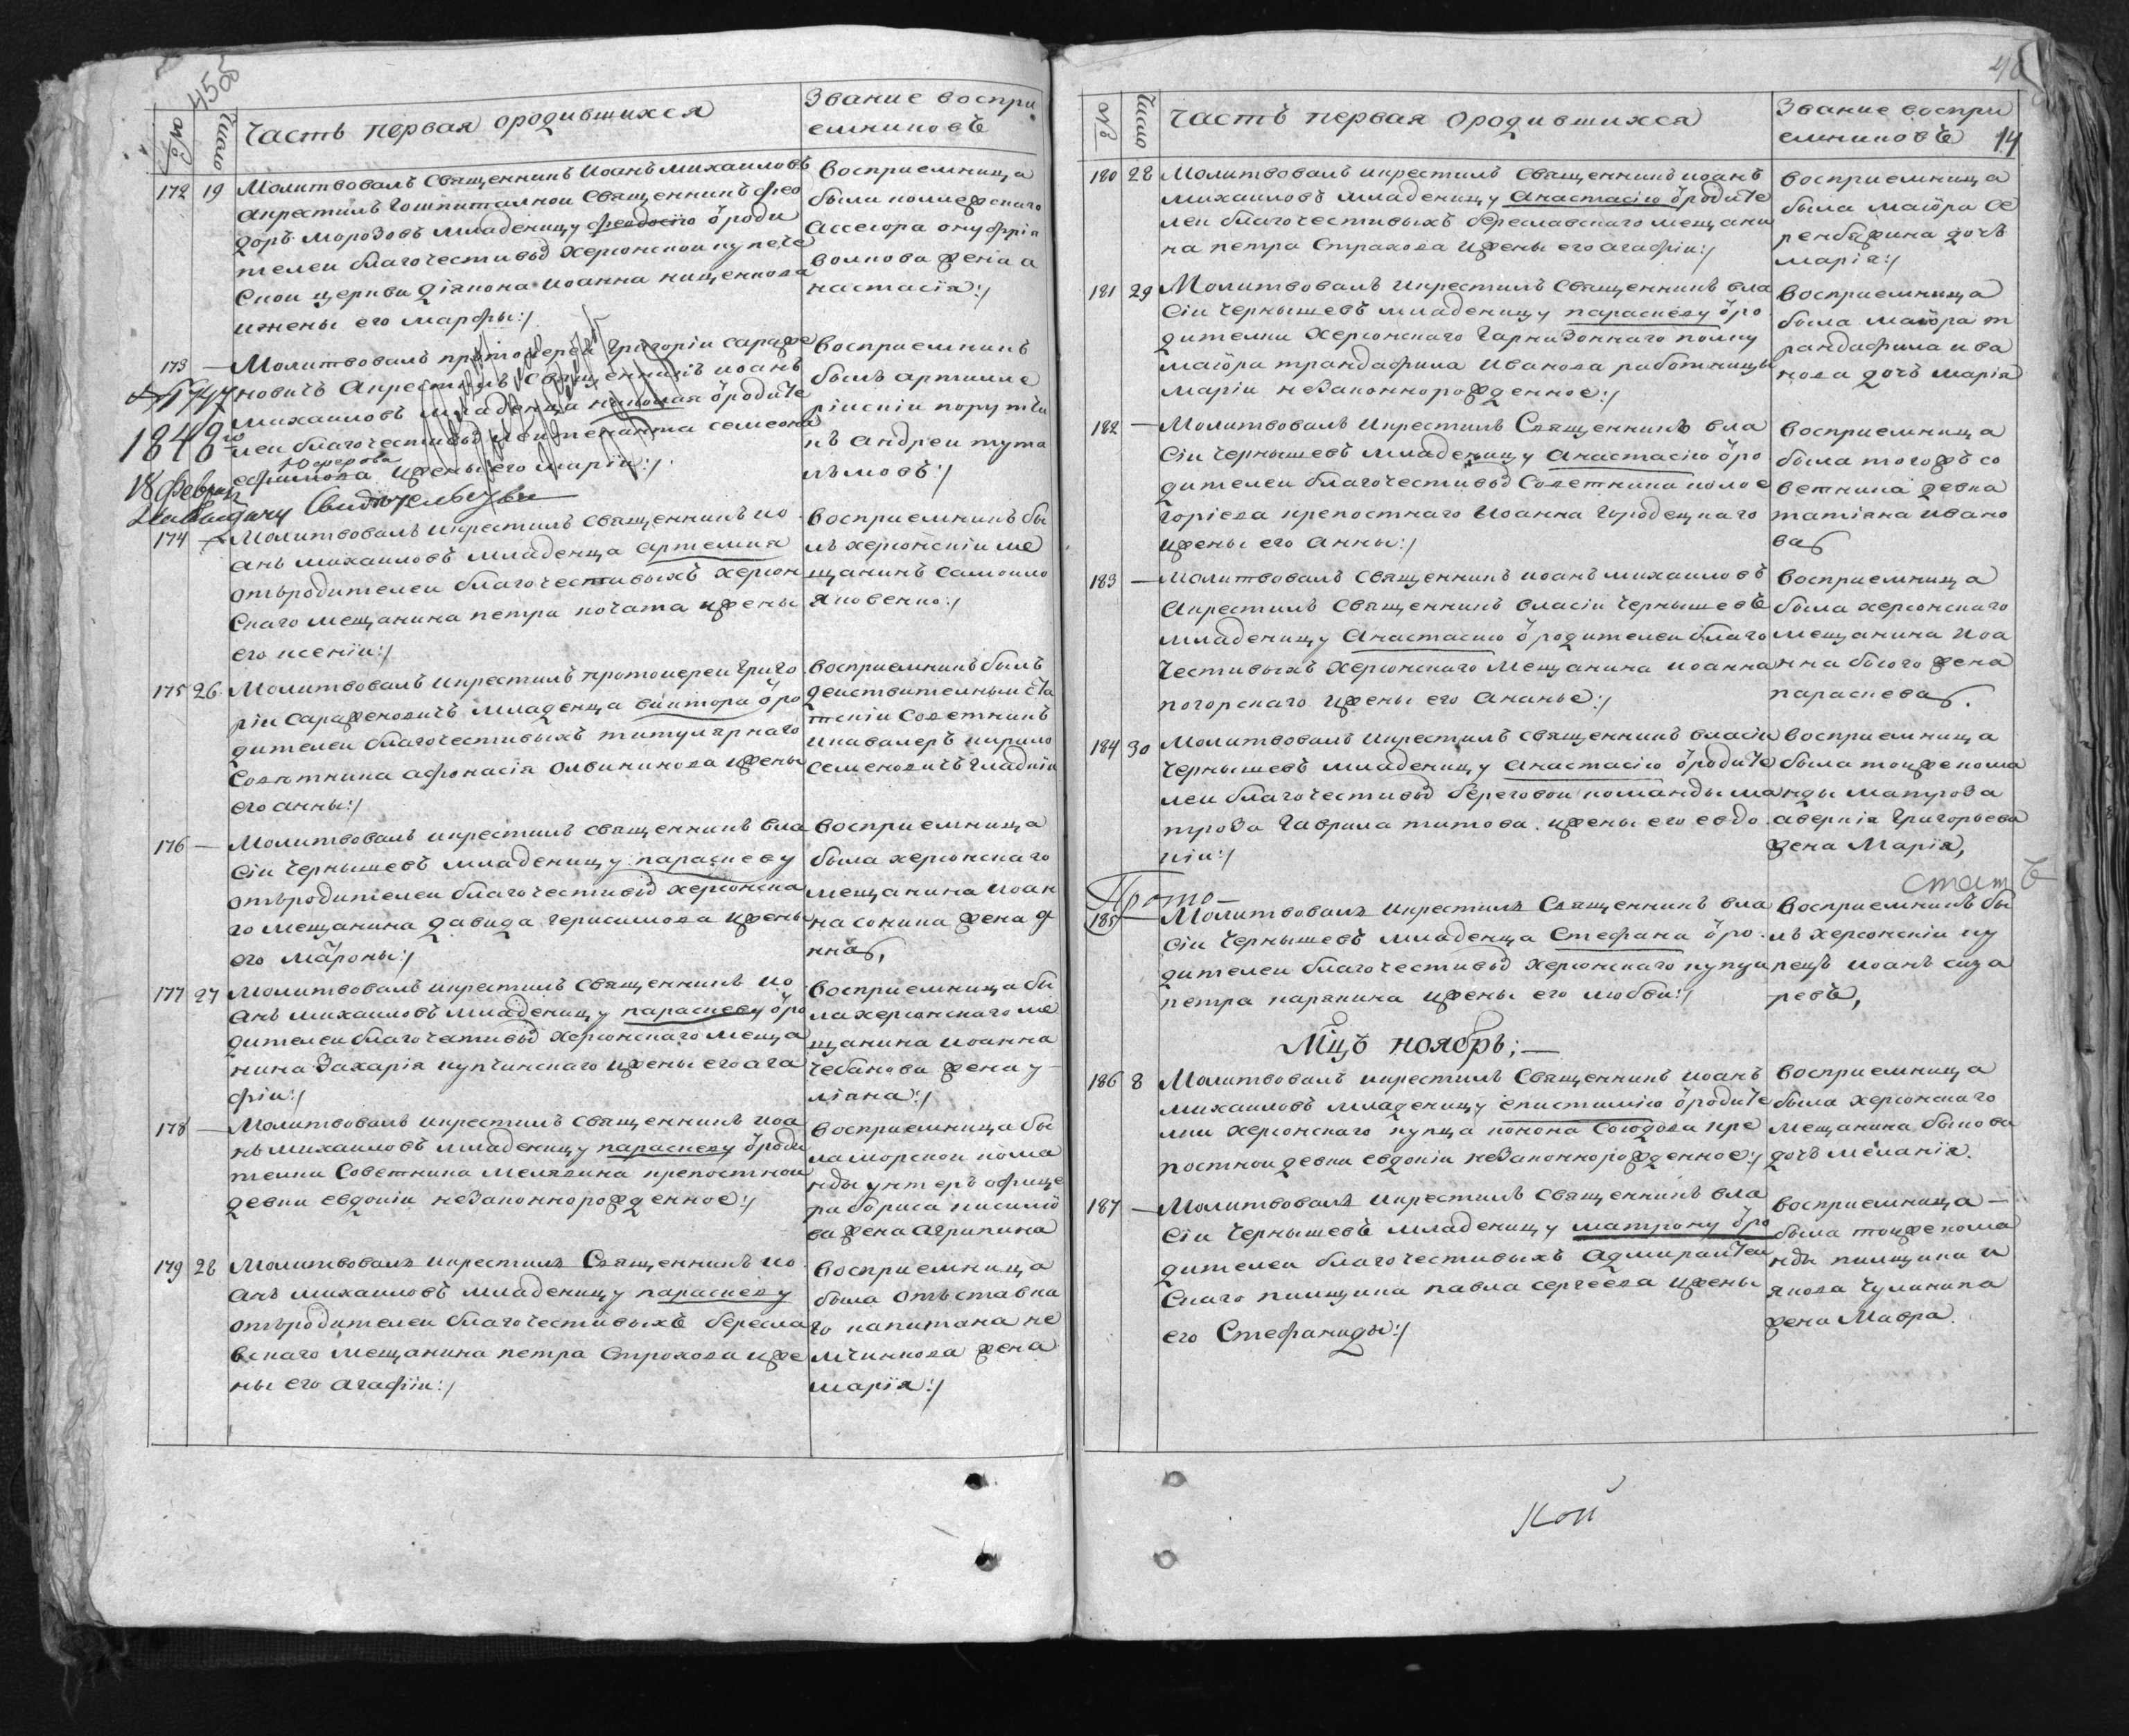 455
№ Число Часть первая ородившихся Звание воспри
емниковъ
172 19 Молитвовалъ священникъ Иоанъ михаиловъ
акрестилъ Гошпиталнои священникъ фео
доръ морозовъ младеницу феодосію ѿ роди
телеи благочестивыхъ херсонскои купече
скои церкви діякона иоанна нищенкова
ижены его марфы:/
Восприемница
была коллежскаго
Ассесора онуфрія
волкова жена а
настасія:/
173 — Молитвовалъ протоиереи григоріи сарафе
новичъ акрестилъ священникъ иоанъ
михаиловъ младенца николая ѿ родите
леи благочестивыхъ леитенанта семеона
ефимова ижены его маріи:/
Восприемникъ
былъ артилле
ріискіи поручи
къ андреи тута
лъмовъ:/
1848го
18 февра
Свидетельство
174 — Молитвовалъ икрестилъ священникъ ио
анъ михаиловъ младенца артемия
отъродителеи благочестивыхъ херсон
скаго мещанина петра початa ижены
его ксеніи:/
Восприемникъ бы
лъ херсонскіи ме
щанинъ самоило
яковенко:/
175 26 Молитвовалъ икрестилъ протоиереи григо
ріи сарафеновичъ младенца виктора ѿ ро
дителеи благочестивыхъ титулярнаго
советника афонасія ижены
его анны:/
Восприемникъ былъ
деиствителныи ста
тскіи советникъ
икавалеръ кирило
семеновичъ гладкіи
176 — Молитвовалъ икрестилъ священникъ вла
сіи чернышевъ младеницу параскеву
отъродителеи благочестивыхъ херсонска
го мещанина давида герасимова ижены
его матроны:/
Восприемница
была херсонскаго
мещанина иоан
на сонина жена а
нна,
177 27 Молитвовалъ икрестилъ священникъ ио
анъ михаиловъ младеницу параскеву ѿ ро
дителеи благочестивыхъ херсонскаго меща
нина Захарія купчинскаго ижены его ага
фіи:/
Восприемница бы
ла херсонскаго ме
щанина иоанна
чебанова жена у
ліана:/
178 — Молитвовалъ икрестилъ священникъ иоа
нъ михаиловъ младеницу параскеву ѿ роди
телки советника мелявина крепостнои
девки евдокіи незаконнорожденное:/
Восприемница бы
ла морскои кома
нды унтеръ офице
ра бориса киселио
ва жена агрипина
179 28 Молитвовалъ икрестилъ священникъ ио
анъ михаиловъ младеницу параскеву
отъродителеи благочестивыхъ бересла
вскаго мещанина петра строхова ижe
ны его агафіи:/
Восприемница
была отъставна
го капитана не
мчинкова жена
марія:/
№ Число Часть первая ородившихся Звание воспри
емниковъ 14
180 28 Молитвовалъ икрестилъ священникъ иоанъ
михаиловъ младеницу анастасію ѿ родите
леи благочестивыхъ береславскаго мещани
на петра страхова ижены его агафіи:/
Восприемница
была маіора се
ребярина дочъ
марія:/
181 29 Молитвовалъ икрестилъ священникъ вла
сіи чернышевъ младеницу параскеву ѿ ро
дителки херсонскаго гарнизоннаго полку
маіора трандафила иванова работницы
маріи незаконнорожденное:/
Восприемница
была маіора т
рандафила ива
нова дочъ марія
182 — Молитвовалъ икрестилъ священникъ вла
сіи чернышевъ младеницу анастасію ѿ ро
дителеи благочестивыхъ советника колое
горіева крепостнаго иоанна городецкаго
ижены его анны:/
Восприемница
была тогожъ со
ветника девка
татіяна ивано
ва
183 — Молитвовалъ священникъ иоанъ михаиловъ
акрестилъ священникъ власіи чернышевъ
младеницу анастасию ѿ родителеи благо
честивыхъ херсонскаго мещанина иоанна
погорскаго ижены его ананье:/
Восприемница
была херсонскаго
мещанина иоа
нна бюого жена
параскева.
184 30 Молитвовалъ икрестилъ священникъ власіи
чернышевъ младеницу анастасію ѿ родите
леи благочестивыхъ береговои команды ма
троза гаврила титова ижены его евдо
кіи:/
Восприемница
была тоижекома
нды матроза
аверкія григорьева
жена марія,
Прото-
стать
185 — Молитвовалъ икрестилъ священникъ вла
сіи чернышевъ младенца стефана ѿ ро
дителеи благочестивыхъ херсонскаго купца
петра карякина ижены его любви:/
Восприемникъ бы
лъ херсонскіи ку
пецъ иоанъ сиза
ревъ,
Мцъ ноябрь;—
186 8 Молитвовалъ икрестилъ священникъ иоанъ
михаиловъ младеницу епистимію ѿ родите
лки херсонскаго купца конона союдова кре
постнои девки евдокіи незаконнорожденное:/
Восприемница
была херсонскаго
мещанина быкова
дочъ меланія.
187 — Молитвовалъ икрестилъ священникъ вла
сіи чернышевъ младеницу матрону ѿ ро
дителеи благочестивыхъ адмиралтеи
скаго пилщика павла сергеева ижены
его стефаниды:/
Восприемница —
была тоижекома
нды пилщика и
якова чулкина
жена мавра.
кои